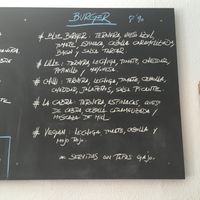 BURGER 8'90
# BLUE BURGER: TERNERA, QUESO AZUL,
TOMATE, ESPINACA, CEBOLLA CARAMELIZADA,
BACON Y SALSA TARTAR
# LECHUGA, TOMATE, CHEDDAR,
PEPINILLO Y MAYONESA
# CHILLI: TERNERA, LECHUGA, TOMATE, CEBOLLA,
CHEDDAR, JALAPEÑOS, SALSA PICANTE.
# LA CABRA: TERNERA, ESPINACAS, QUESO
DE CABRA, CEBOLLA CARAMELIZADA Y
MOSTAZA DE MIEL
# VEGAN: LECHUGA, TOMATE, CEBOLLA Y
MOJO ROJO
* SERVIDAS CON PAPAS GAJO.